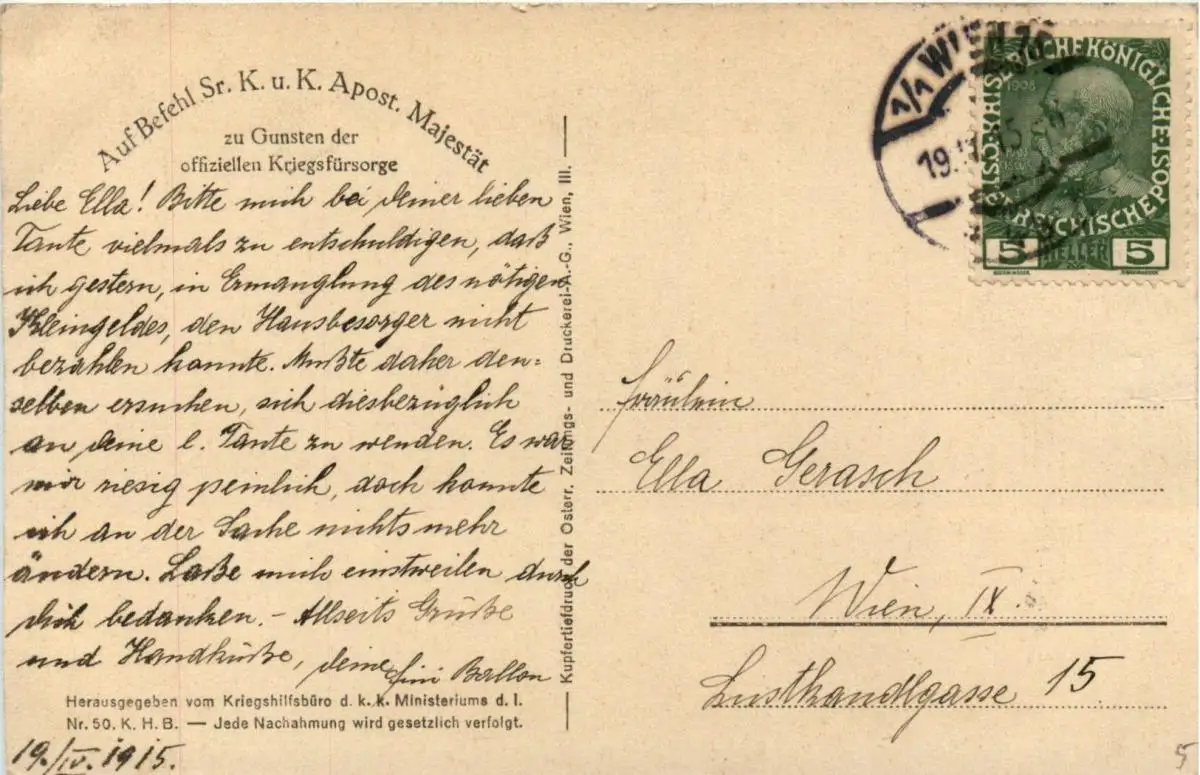 Auf Befehl Sr. K. u. K. Apost. Majestät
zu Gunsten der
offiziellen Kriegsfürsorge
Liebe Ella! Bitte mich bei deiner lieben
Tante vielmals zu entschuldigen, daß
ich gestern, in Ermanglung des nötigen
Kleingeldes, den Hausbesorger nicht
bezahlen konnte. Mußte daher den=
selben ersuchen, sich diesbezüglich
an deine l. Tante zu wenden. Es war
mir riesig peinlich, doch konnte
ich an der Sache nichts mehr
ändern. Laße mich einstweilen durch
dich bedanken. – Allseits Grüße
und Handküße, deine Fini Ballon
Herausgegeben vom Kriegshilfsbüro d. k. k. Ministeriums d. I.
Nr. 50. K. H. B. — Jede Nachahmung wird gesetzlich verfolgt.
19./IV. 1915.
Kupfertiefdruck der Österr. Zeitungs- und Druckerei-A.-G., Wien, III.
1/1 WIEN
19.
KAISERLICHE KÖNIGLICHE ÖSTERREICHISCHE POST
1908
5 HELLER 5
Fräulein
Ella Gerasch
Wien, IX.
Lustkandlgasse 15
5